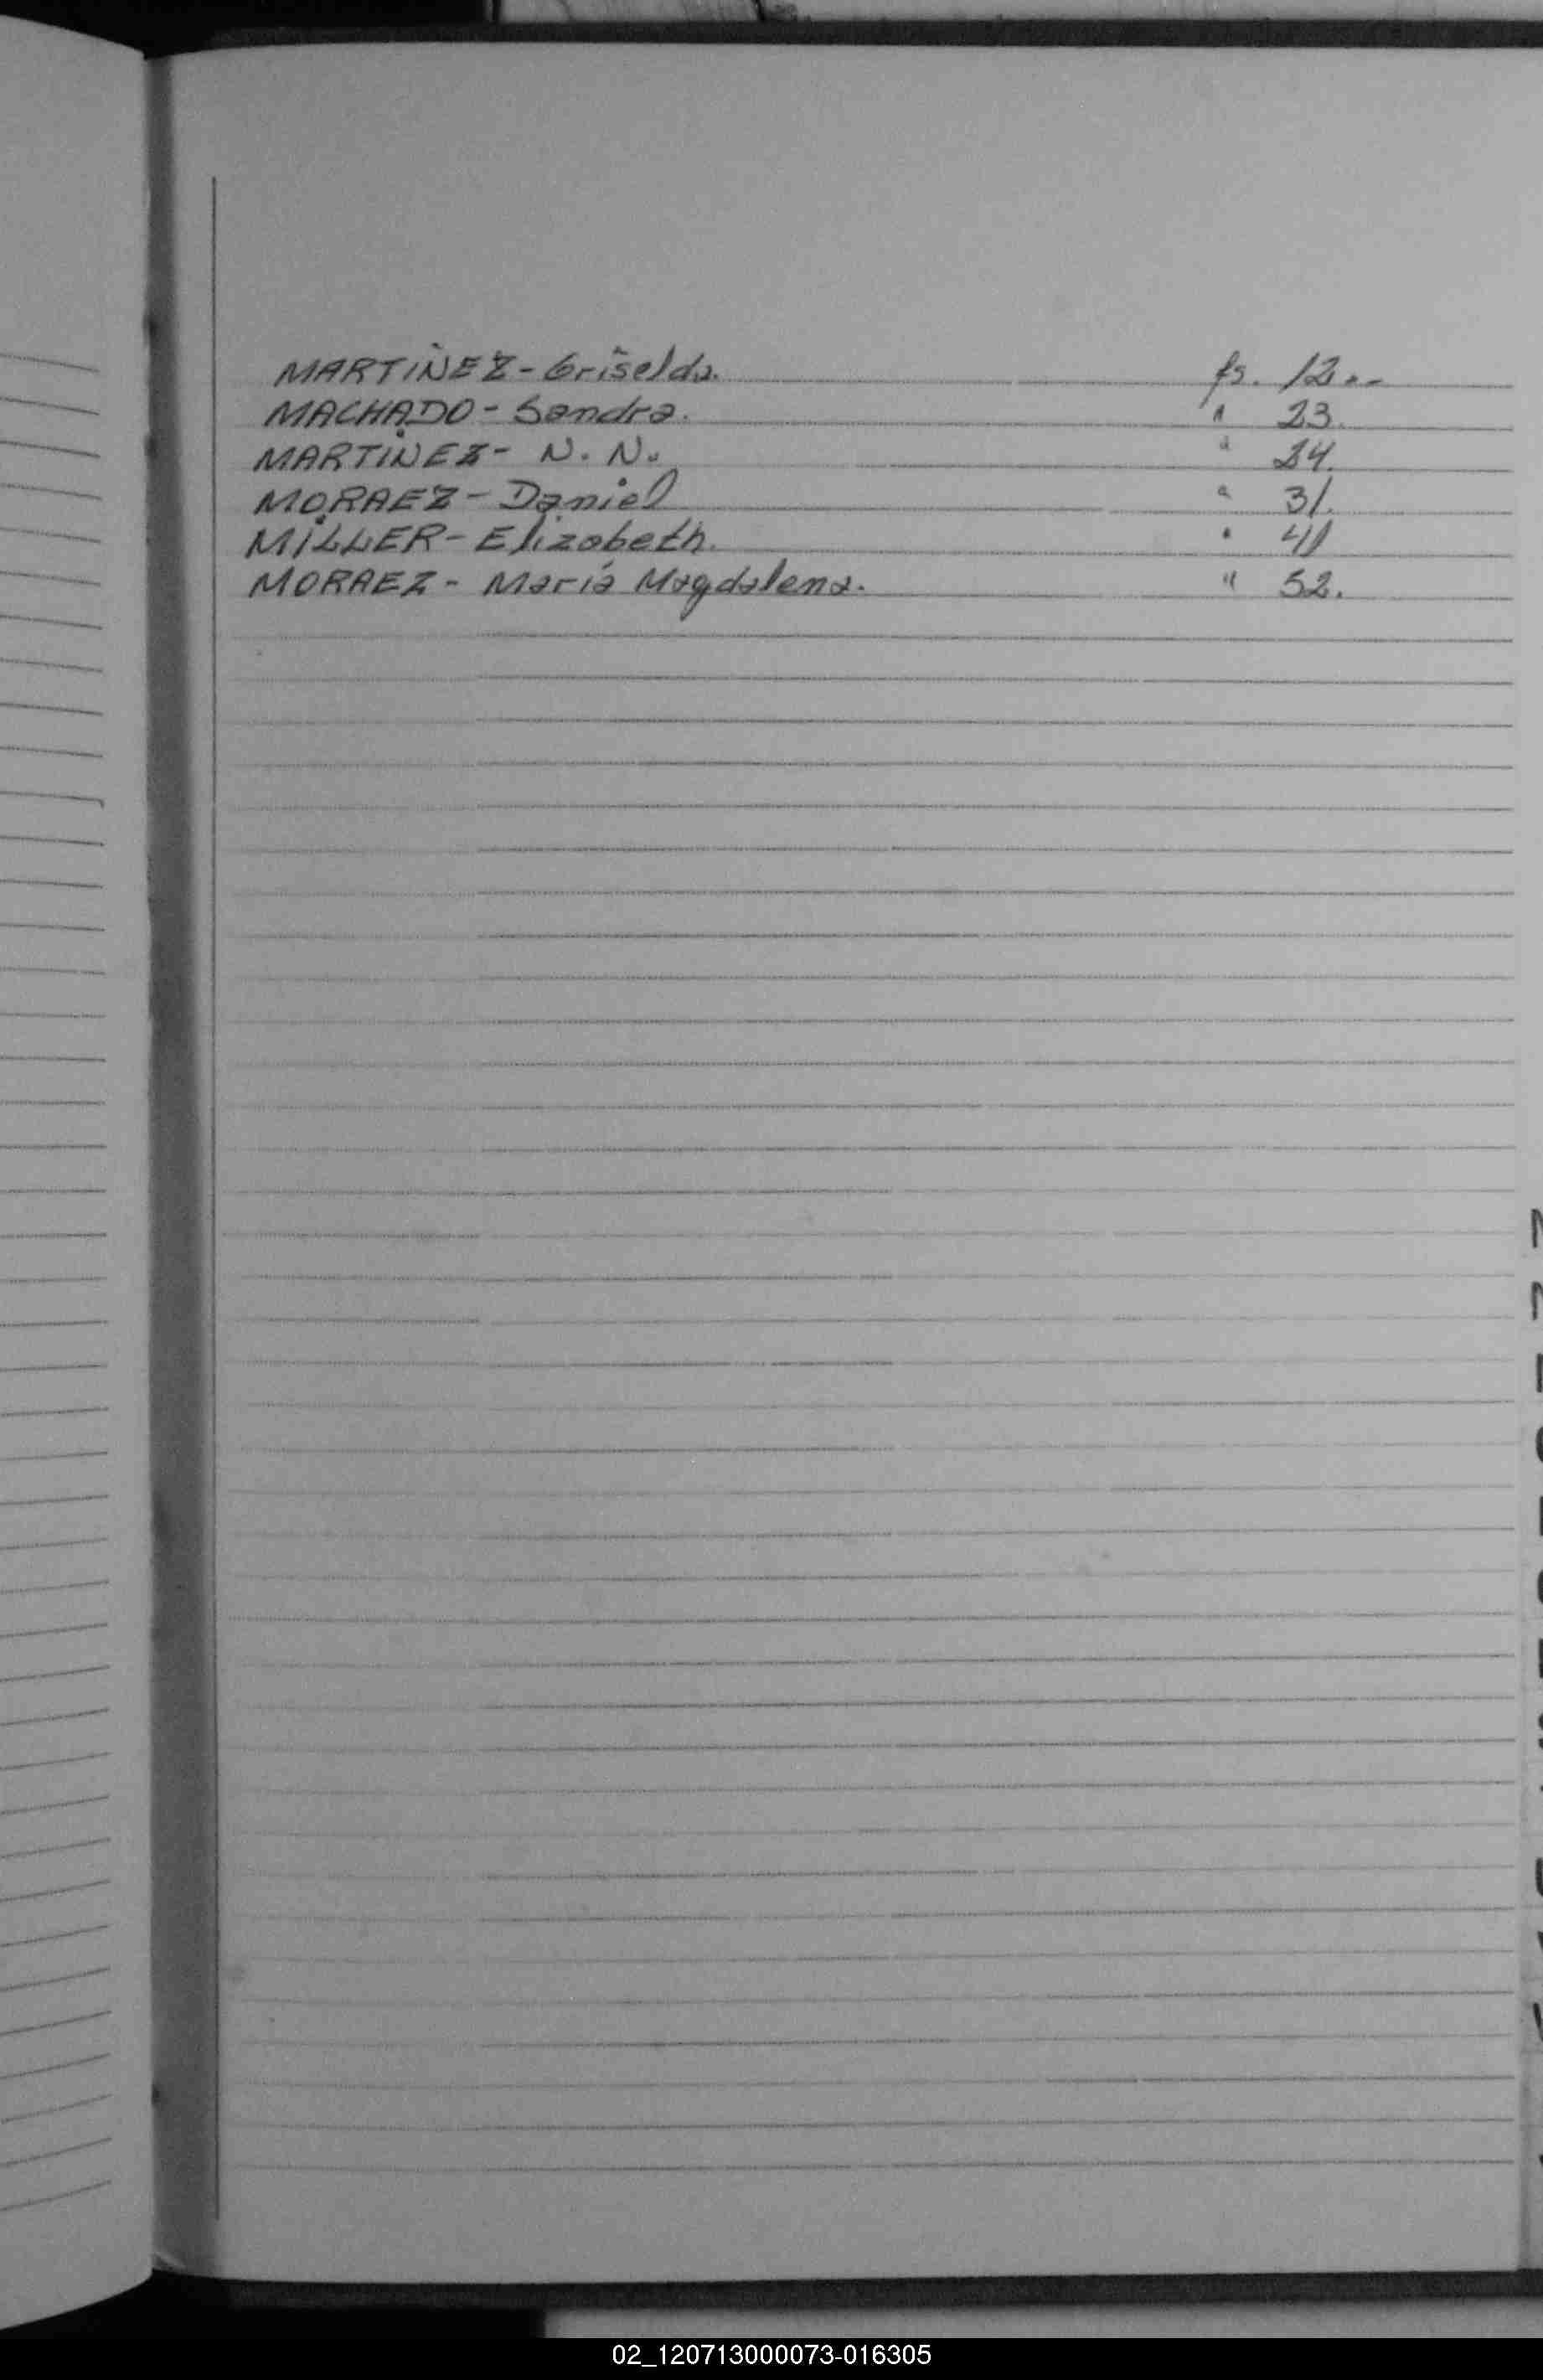 MARTINEZ - Griselda. fs. 12.-
MACHADO - Sandra. " 23.
MARTINEZ - N. N. " 24.
MORAEZ - Daniel " 31.
MILLER - Elizabeth. " 41
MORAEZ - María Magdalena. " 52.
02_120713000073-016305